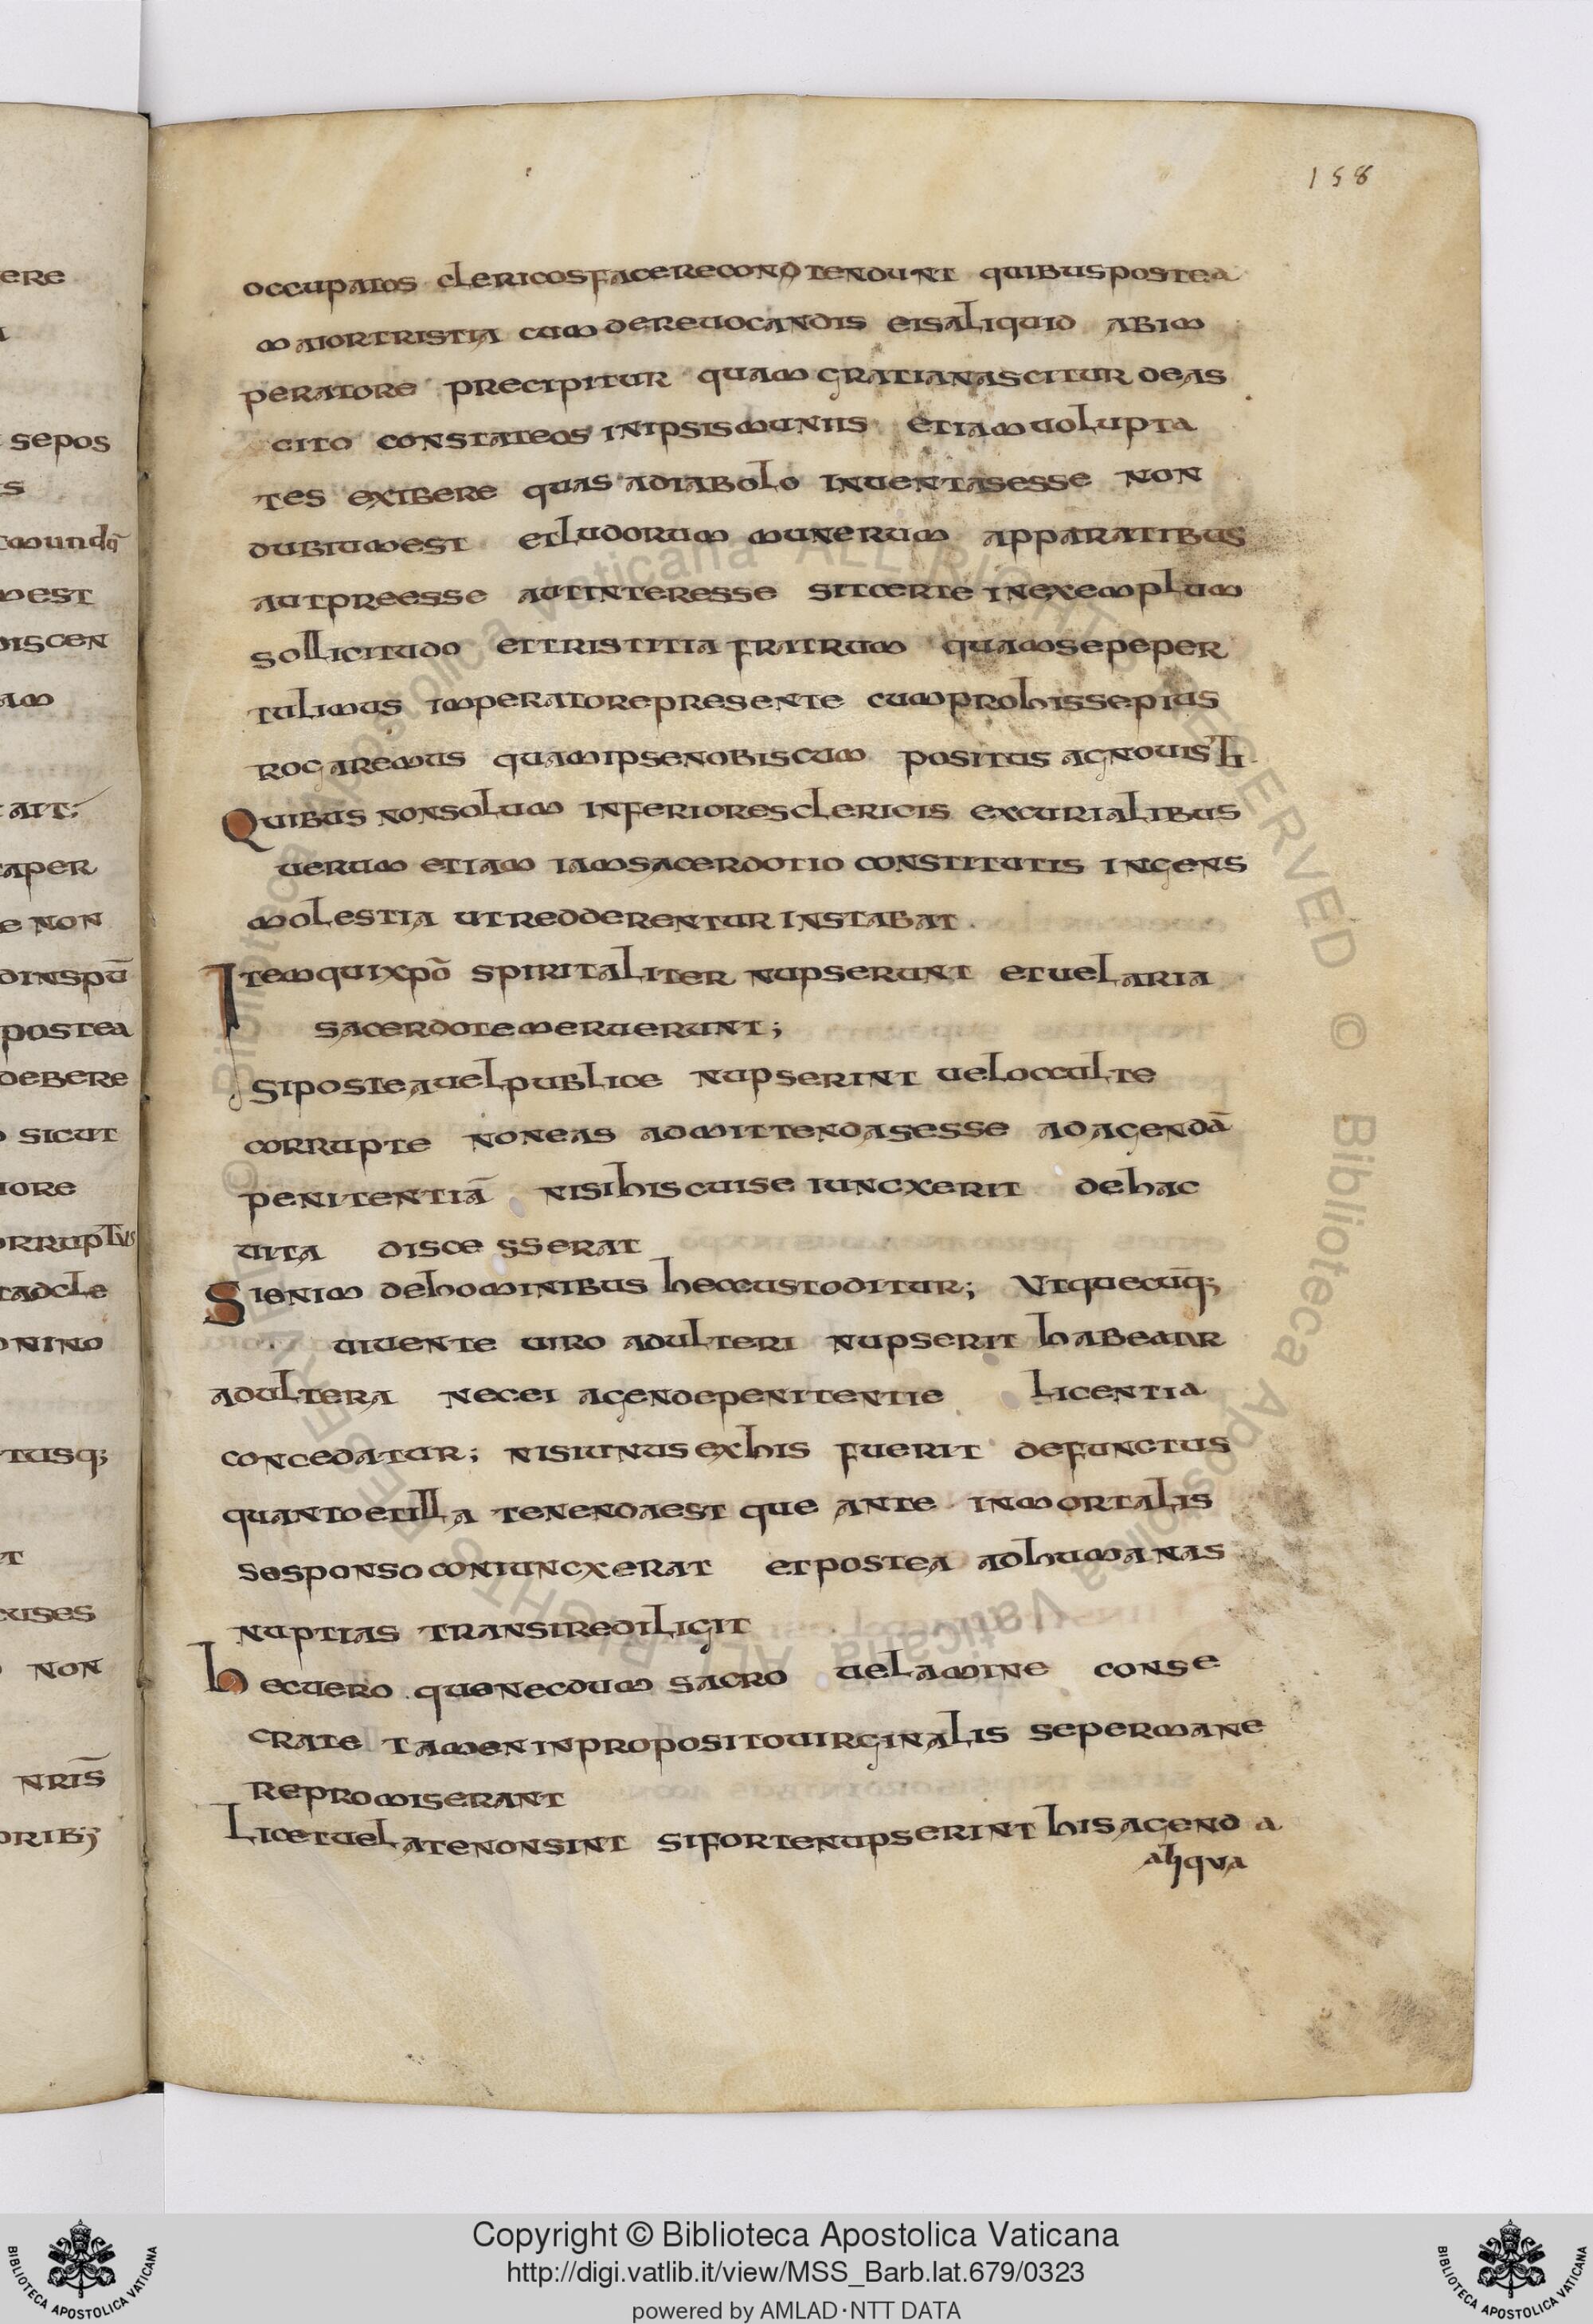 ere
sepos
is
mundq̄
mest
discen
am
ait;
aper
e non
dinspū
postea
debere
sicut
iore
orruptus
tadcle
omnino
tusq;
et
cuses
non
nrīs
orib;
158
occupatos clericos facere contendunt quibus postea
maior tristia cum de reuocandis eis aliquid ab im
peratore precipitur quam gratia nascitur de as
cito constat eos in ipsis muniis etiam uolupta
tes exibere quas a diabolo inuentas esse non
dubium est et ludorum munerum apparatibus
aut preesse aut interesse sit certe in exemplum
sollicitudo et tristitia fratrum quam sepe per
tulimus imperatore presente cum pro his sepius
rogaremus quam ipse nobiscum positus agnouisti
Quibus non solum inferiores clericis ex curialibus
uerum etiam iam sacerdotio constitutis ingens
molestia ut redderentur instabat.
Item qui xpō spiritaliter nupserunt et uelari a
sacerdote meruerunt;
Si postea uel publice nupserint uel occulte
corrupte non eas admittendas esse ad agendā
penitentiā nisi his cui se iuncxerit de hac
uita discesserat
Si enim de hominibus hec custoditur; Ut quecūq;
uiuente uiro adulteri nupserit habeatur
adultera nec ei agende penitentie licentia
concedatur; nisi unus ex his fuerit defunctus
quanto et illa tenenda est que ante inmortali s
se sponso coniuncxerat et postea ad humanas
nuptias transire diligit
hec uero que necdum sacro uelamine conse
crate tamen in proposito uirginalis se permane
re promiserant
Licet uelate non sint si forte nupserint his agenda
aliqua
© Biblioteca Apostolica Vaticana ALL RIGHTS RESERVED © Biblioteca Apostolica Vaticana ALL RIGHTS RESERVED
BIBLIOTECA APOSTOLICA VATICANA
Copyright © Biblioteca Apostolica Vaticana
http://digi.vatlib.it/view/MSS_Barb.lat.679/0323
powered by AMLAD·NTT DATA
BIBLIOTECA APOSTOLICA VATICANA